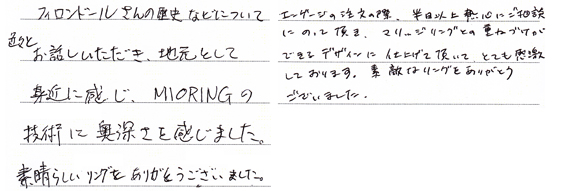 フィロンドールさんの歴史などについて
色々と
お話しいただき、地元として
身近に感じ、MIORINGの
技術に奥深さを感じました。
素晴らしいリングをありがとうございました。
エンゲージの注文の際、半日以上熱心にご相談
にのって頂き、マリッジリングとの重ねづけが
できるデザインに仕上げて頂いて、とても感激
しております。素敵なリングをありがとう
ございました。